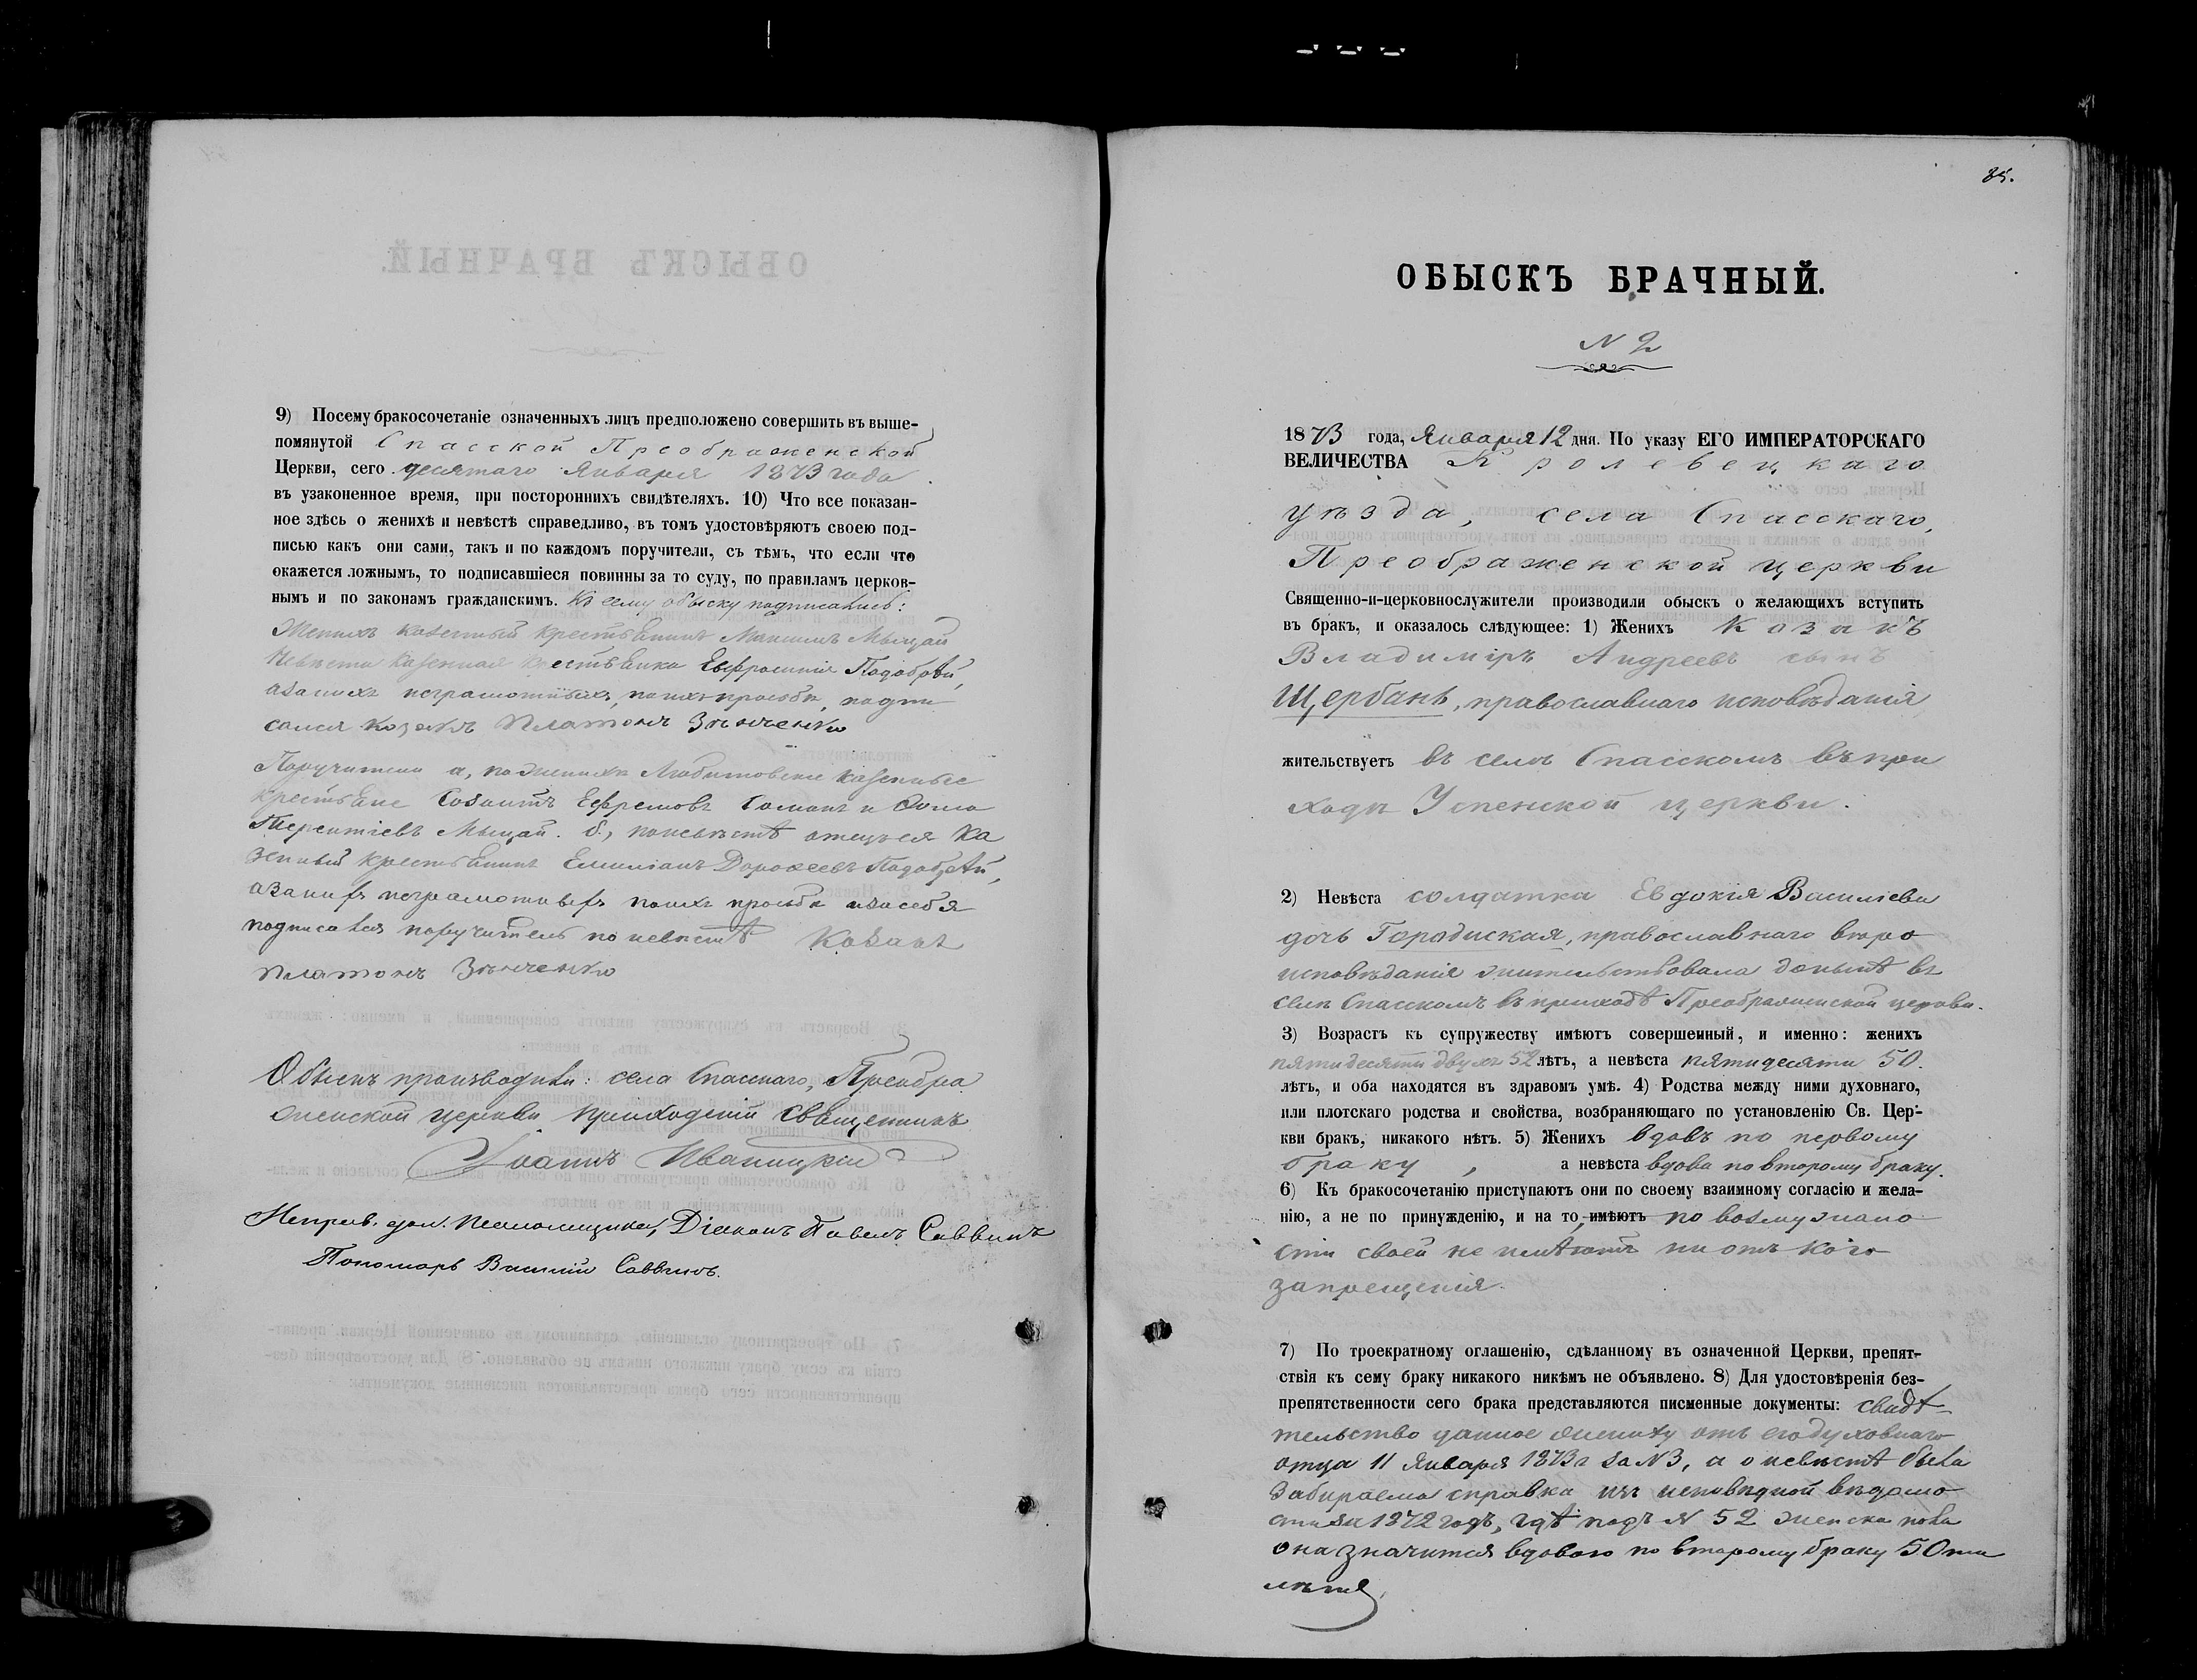 9) Посему бракосочетаніе означенныхъ лицъ предположено совершить въ выше-
помянутой Спасской Преображенской
Церкви, сего десятаго Января 1873 года
въ узаконенное время, при постороннихъ свидѣтеляхъ. 10) Что все показан-
ное здѣсь о женихѣ и невѣстѣ справедливо, въ томъ удостовѣряютъ своею под-
писью какъ они сами, такъ и по каждомъ поручители, съ тѣмъ, что если что
окажется ложнымъ, то подписавшіеся повинны за то суду, по правиламъ церков-
нымъ и по законамъ гражданскимъ. Къ сему обыску подписались:
Женихъ казенный крестьянинъ Максимъ Мыцай
Невѣста казенная крестьянка Евфросинія
а за нихъ неграмотныхъ, по ихъ просьбѣ, подпи
сался козакъ Платонъ Зѣнченко
Поручители а, по женихѣ Любитовскіе казенные
крестьяне Созонтъ Ефремовъ и Ѳома
Терентіевъ Мыцай. б, по невѣстѣ отецъ ея ка
зенный крестьянинъ Емиліанъ Дороѳеевъ
а за нихъ неграмотныхъ по ихъ просьбѣ и за себя
подписался поручитель по невѣстѣ Козакъ
Платонъ Зѣнченко
Обыскъ производили: села Спасскаго, Преобра
женской церкви приходскій священникъ
Іоаннъ Иваницкій
Исправ. дол. псаломщика, Діаконъ Павелъ Саввинъ
Пономарь Василій Саввинъ.
85.
ОБЫСКЪ БРАЧНЫЙ.
N 2
1873 года, Января 12 дня. По указу ЕГО ИМПЕРАТОРСКАГО
ВЕЛИЧЕСТВА Кролевецкаго
уѣзда, села Спасскаго,
Преображенской церкви
Священно-и-церковнослужители производили обыскъ о желающихъ вступить
въ бракъ, и оказалось слѣдующее: 1) Женихъ Козакъ
Владиміръ Андреевъ сынъ
Щербань, православнаго исповѣданія
жительствуетъ въ селѣ Спасскомъ въ при
ходѣ Успенской церкви.
2) Невѣста солдатка Евдокія Василіева
дочь Городиская, православнаго вѣро
исповѣданія жительствовала донынѣ въ
селѣ Спасскомъ въ приходѣ Преображенской церкви.
3) Возрастъ къ супружеству имѣютъ совершенный, и именно: женихъ
пятидесяти двухъ 52 лѣтъ, а невѣста пятидесяти 50.
лѣтъ, и оба находятся въ здравомъ умѣ. 4) Родства между ними духовнаго,
или плотскаго родства и свойства, возбраняющаго по установленію Св. Цер-
кви бракъ, никакого нѣтъ. 5) Женихъ вдовъ по первому
браку, а невѣста вдова по второму браку.
6) Къ бракосочетанію приступаютъ они по своему взаимному согласію и жела-
нію, а не по принужденію, и на то, имѣютъ по возмужало
сти своей не имѣютъ ни отъ кого
запрещенія.
7) По троекратному оглашенію, сдѣланному въ означенной Церкви, препят-
ствія къ сему браку никакого никѣмъ не объявлено. 8) Для удостовѣренія без-
препятственности сего брака представляются писменные документы: свидѣ
тельство данное жениху отъ его духовнаго
отца 11 Января 1873 г за N 3, а о невѣстѣ была
забираема справка изъ исповѣдной вѣдомо
сти за 1872 годъ, гдѣ подъ N 52 женска пола
она значится вдовою по второму браку 50 ти
лѣтъ